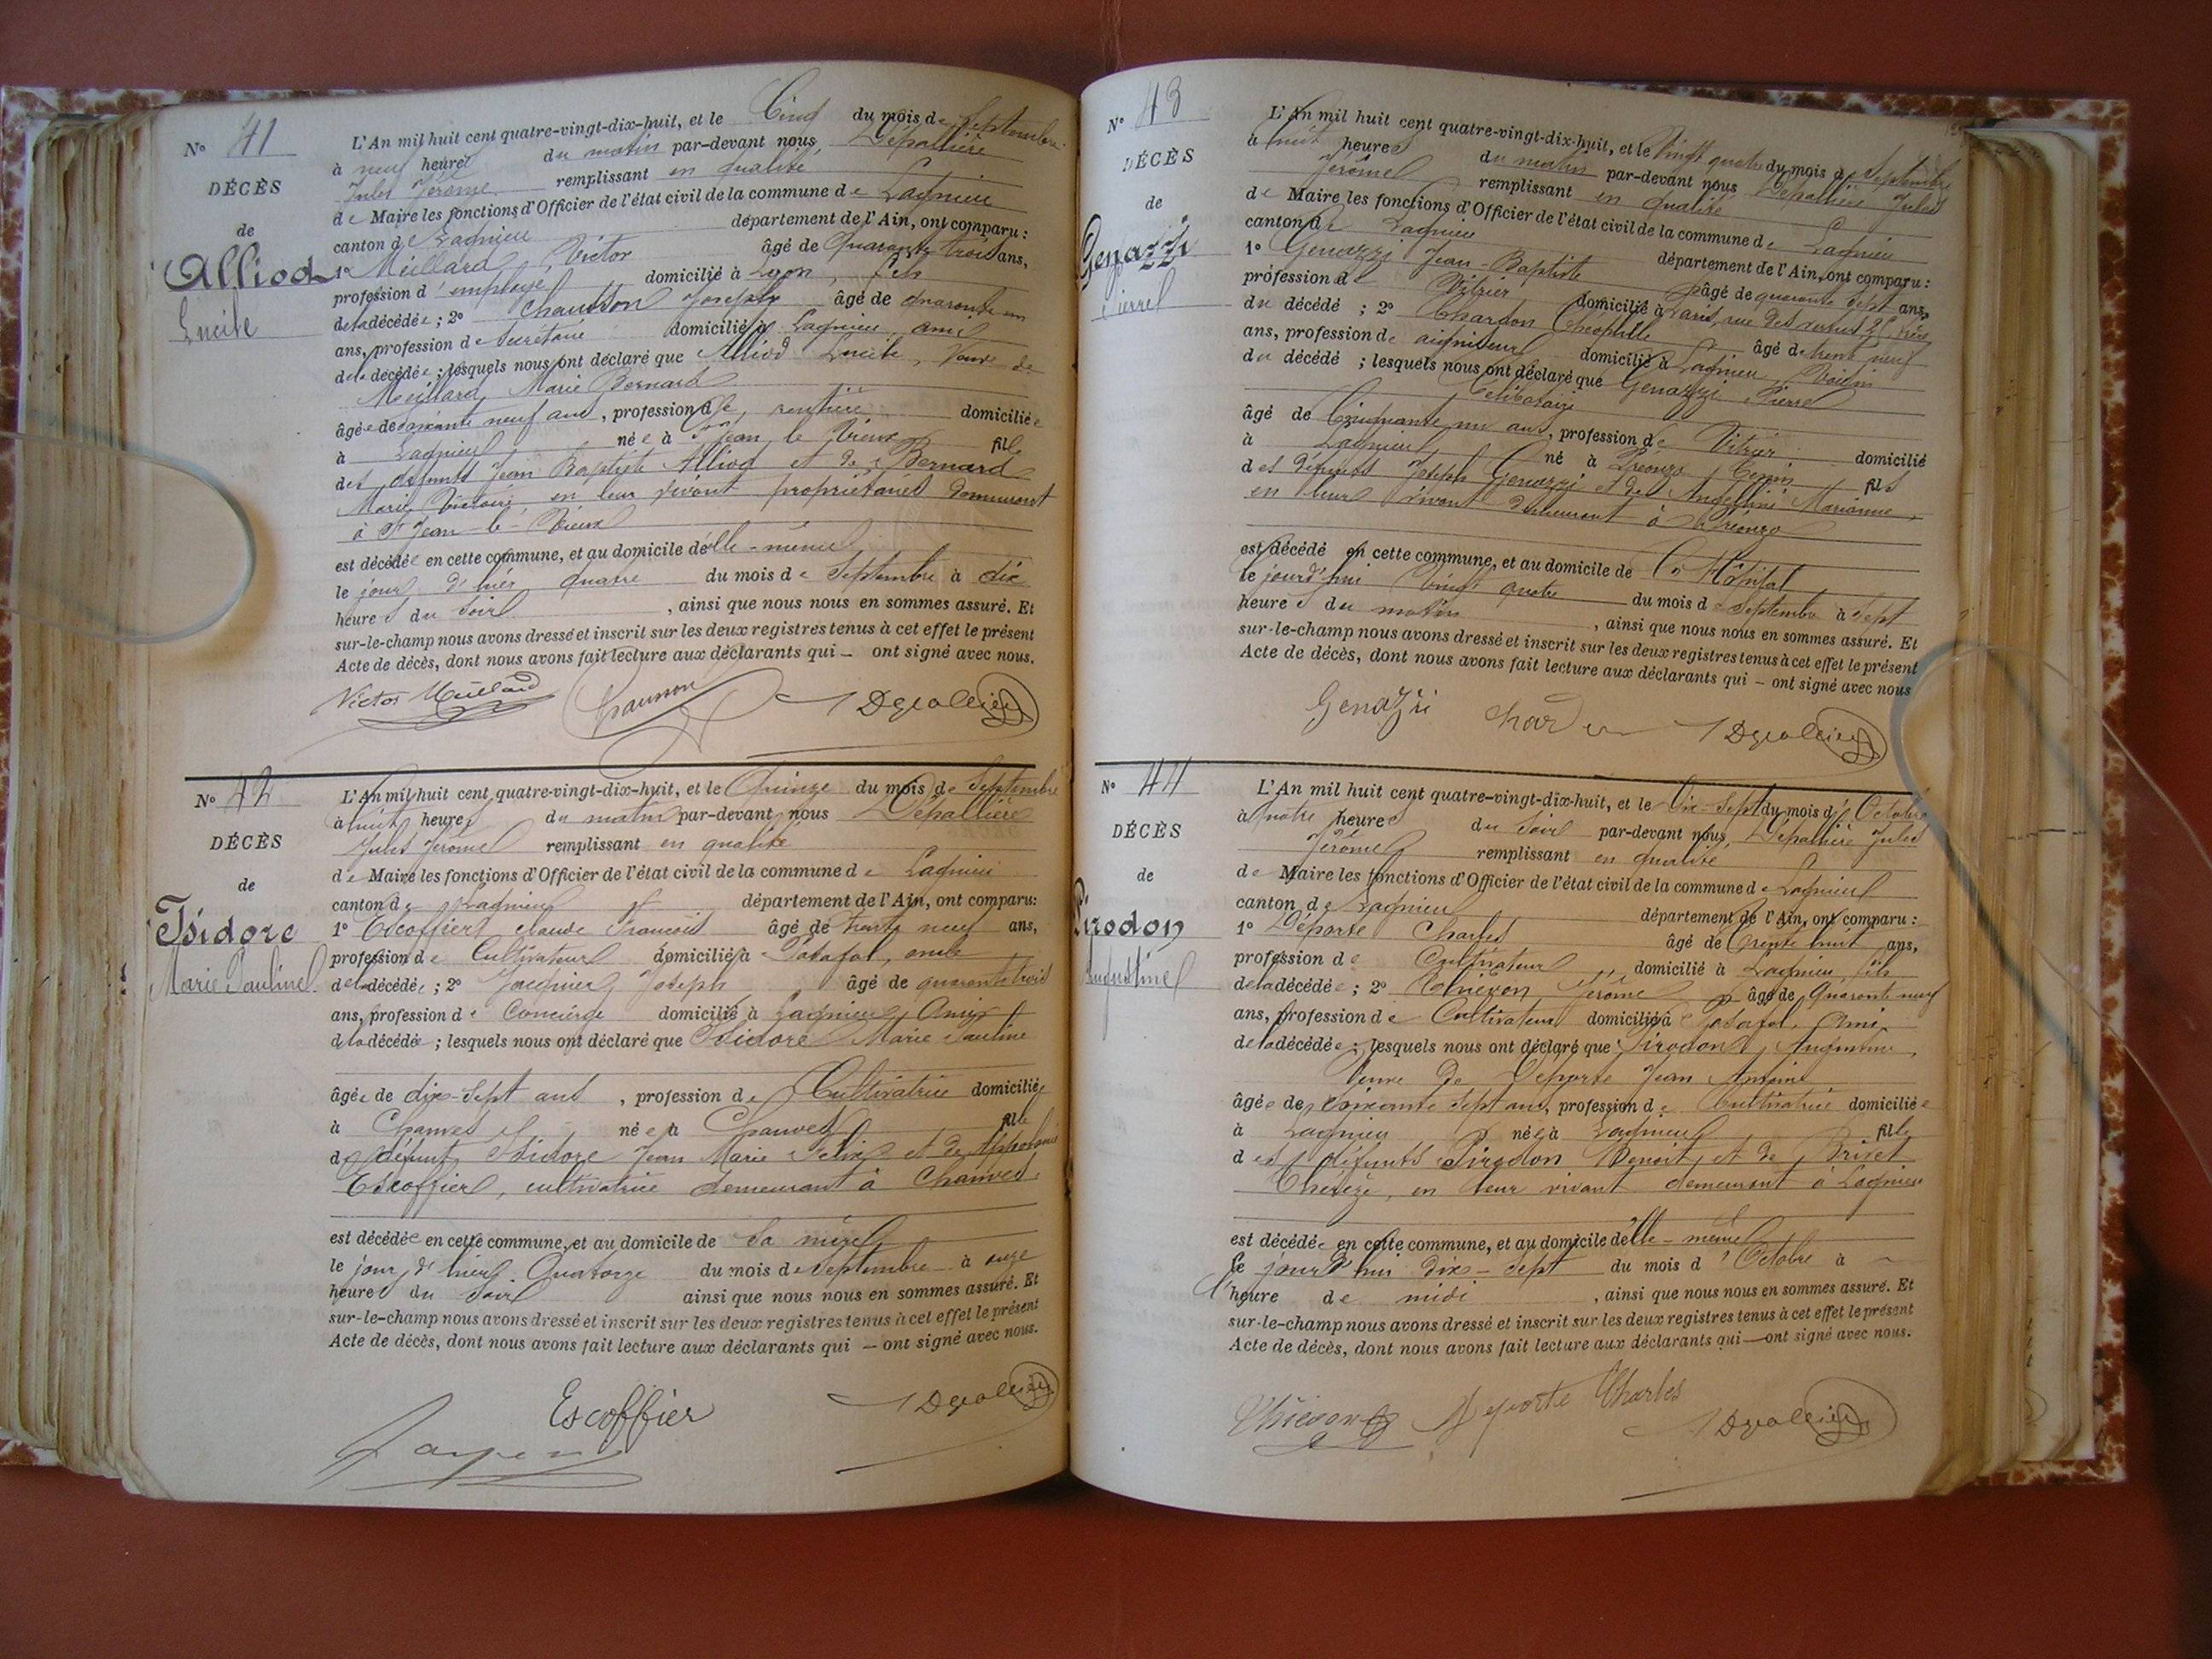 N° 41
DÉCÈS
de
Alliod
Lucile
L'An mil huit cent quatre-vingt-dix-huit, et le Cinq du mois de Septembre
à neuf heures du matin par-devant nous, Dépallière
Jules Jérome remplissant en qualité
de Maire les fonctions d'Officier de l'état civil de la commune de Lagnieu
canton de Lagnieu département de l'Ain, ont comparu :
1° Meillard, Victor âgé de Quarante trois ans,
profession d'employé domicilié à Lyon, fils
de la décédée ; 2° Chausson Joseph âgé de quarante un
ans, profession de Secrétaire domicilié à Lagnieu, ami
de la décédée ; lesquels nous ont déclaré que Alliod Lucile, Veuve de
Meillard Marie Bernard
âgée de soixante neuf ans, profession de rentière domiciliée
à Lagnieu née à St Jean le Vieux fille
des défunts Jean Baptiste Alliod et de Bernard
Marie Victoire, en leur vivant propriétaires demeurant
à St Jean-le-Vieux
est décédée en cette commune, et au domicile d'elle-même
le jour d'hier quatre du mois de Septembre à dix
heures du Soir, ainsi que nous nous en sommes assuré. Et
sur-le-champ nous avons dressé et inscrit sur les deux registres tenus à cet effet le présent
Acte de décès, dont nous avons fait lecture aux déclarants qui — ont signé avec nous.
Victor Meillard Chausson JDépallière
N° 42
DÉCÈS
de
Isidore
Marie Pauline
L'An mil huit cent quatre-vingt-dix-huit, et le Quinze du mois de Septembre
à huit heures du matin par-devant nous Dépallière
Jules Jérome remplissant en qualité
de Maire les fonctions d'Officier de l'état civil de la commune de Lagnieu
canton de Lagnieu département de l'Ain, ont comparu :
1° Escoffier Claude François âgé de trente neuf ans,
profession de Cultivateur domicilié à Posafol, oncle
de la décédée ; 2° Joseph âgé de quarante trois
ans, profession de Concierge domicilié à Lagnieu, Ami
de la décédée ; lesquels nous ont déclaré que Isidore Marie Pauline
âgée de dix-sept ans, profession de Cultivatrice domiciliée
à Chanves née à Chanves fille
de défunt Isidore Jean Marie Félix et de
Escoffier, cultivatrice demeurant à Chanves
est décédée en cette commune, et au domicile de Sa mère
le jour d'hier Quatorze du mois de Septembre à onze
heures du Soir ainsi que nous nous en sommes assuré. Et
sur-le-champ nous avons dressé et inscrit sur les deux registres tenus à cet effet le présent
Acte de décès, dont nous avons fait lecture aux déclarants qui — ont signé avec nous.
Escoffier JDépallière
N° 43
DÉCÈS
de
Genazzi
Pierre
L'An mil huit cent quatre-vingt-dix-huit, et le Vingt quatre du mois de Septembre
à huit heures du matin par-devant nous Dépallière Jules
Jérome remplissant en qualité
de Maire les fonctions d'Officier de l'état civil de la commune de Lagnieu
canton de Lagnieu département de l'Ain, ont comparu :
1° Genazzi Jean-Baptiste âgé de quarante sept ans,
profession de Vitrier domicilié à Paris, rue des 25, frère
du décédé ; 2° Chardon Théophile âgé de trente neuf
ans, profession de aiguiseur domicilié à Lagnieu, Voisin
du décédé ; lesquels nous ont déclaré que Genazzi Pierre
Célibataire
âgé de Cinquante un ans, profession de Vitrier domicilié
à Lagnieu né à Préonzo, Tessin fils
des défunts Joseph Genazzi et de Angellini Marianne,
en leur vivant demeurant à Préonzo
est décédé en cette commune, et au domicile de l'Hôpital
le jourd'hui vingt quatre du mois de Septembre à Sept
heures du matin, ainsi que nous nous en sommes assuré. Et
sur-le-champ nous avons dressé et inscrit sur les deux registres tenus à cet effet le présent
Acte de décès, dont nous avons fait lecture aux déclarants qui — ont signé avec nous
Genazzi Chardon JDépallière
N° 44
DÉCÈS
de
Pirodon
Augustine
L'An mil huit cent quatre-vingt-dix-huit, et le Dix-Sept du mois d'Octobre
à quatre heures du Soir par-devant nous, Dépallière Jules
Jérome remplissant en qualité
de Maire les fonctions d'Officier de l'état civil de la commune de Lagnieu
canton de Lagnieu département de l'Ain, ont comparu :
1° Déporte Charles âgé de Trente huit ans,
profession de Cultivateur domicilié à Lagnieu, fils
de la décédée ; 2° Thiévon Jérôme âgé de Quarante neuf
ans, profession de Cultivateur domicilié à Posafol, Ami
de la décédée ; lesquels nous ont déclaré que Pirodon, Augustine,
Veuve de Déporte Jean Antoine
âgée de soixante sept ans, profession de Cultivatrice domiciliée
à Lagnieu née à Lagnieu fille
des défunts Pirodon Benoit et de Brivet
Thérèze, en leur vivant demeurant à Lagnieu
est décédée en cette commune, et au domicile d'elle-même
le jourd'hui dix-sept du mois d'Octobre à
l'heure de midi, ainsi que nous nous en sommes assuré. Et
sur-le-champ nous avons dressé et inscrit sur les deux registres tenus à cet effet le présent
Acte de décès, dont nous avons fait lecture aux déclarants qui — ont signé avec nous.
Thiévon Déporte Charles JDépallière